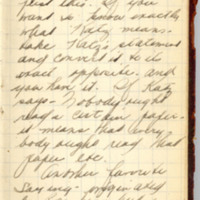 just this. If you
want to know exactly
what Katz means.
take Katz's statement
and convert it to its
exact opposite. and
you have it. If Katz
says - Nobody ought
read a certain paper.
it means that every
body ought read that
paper etc.
Another favorite
saying - originated